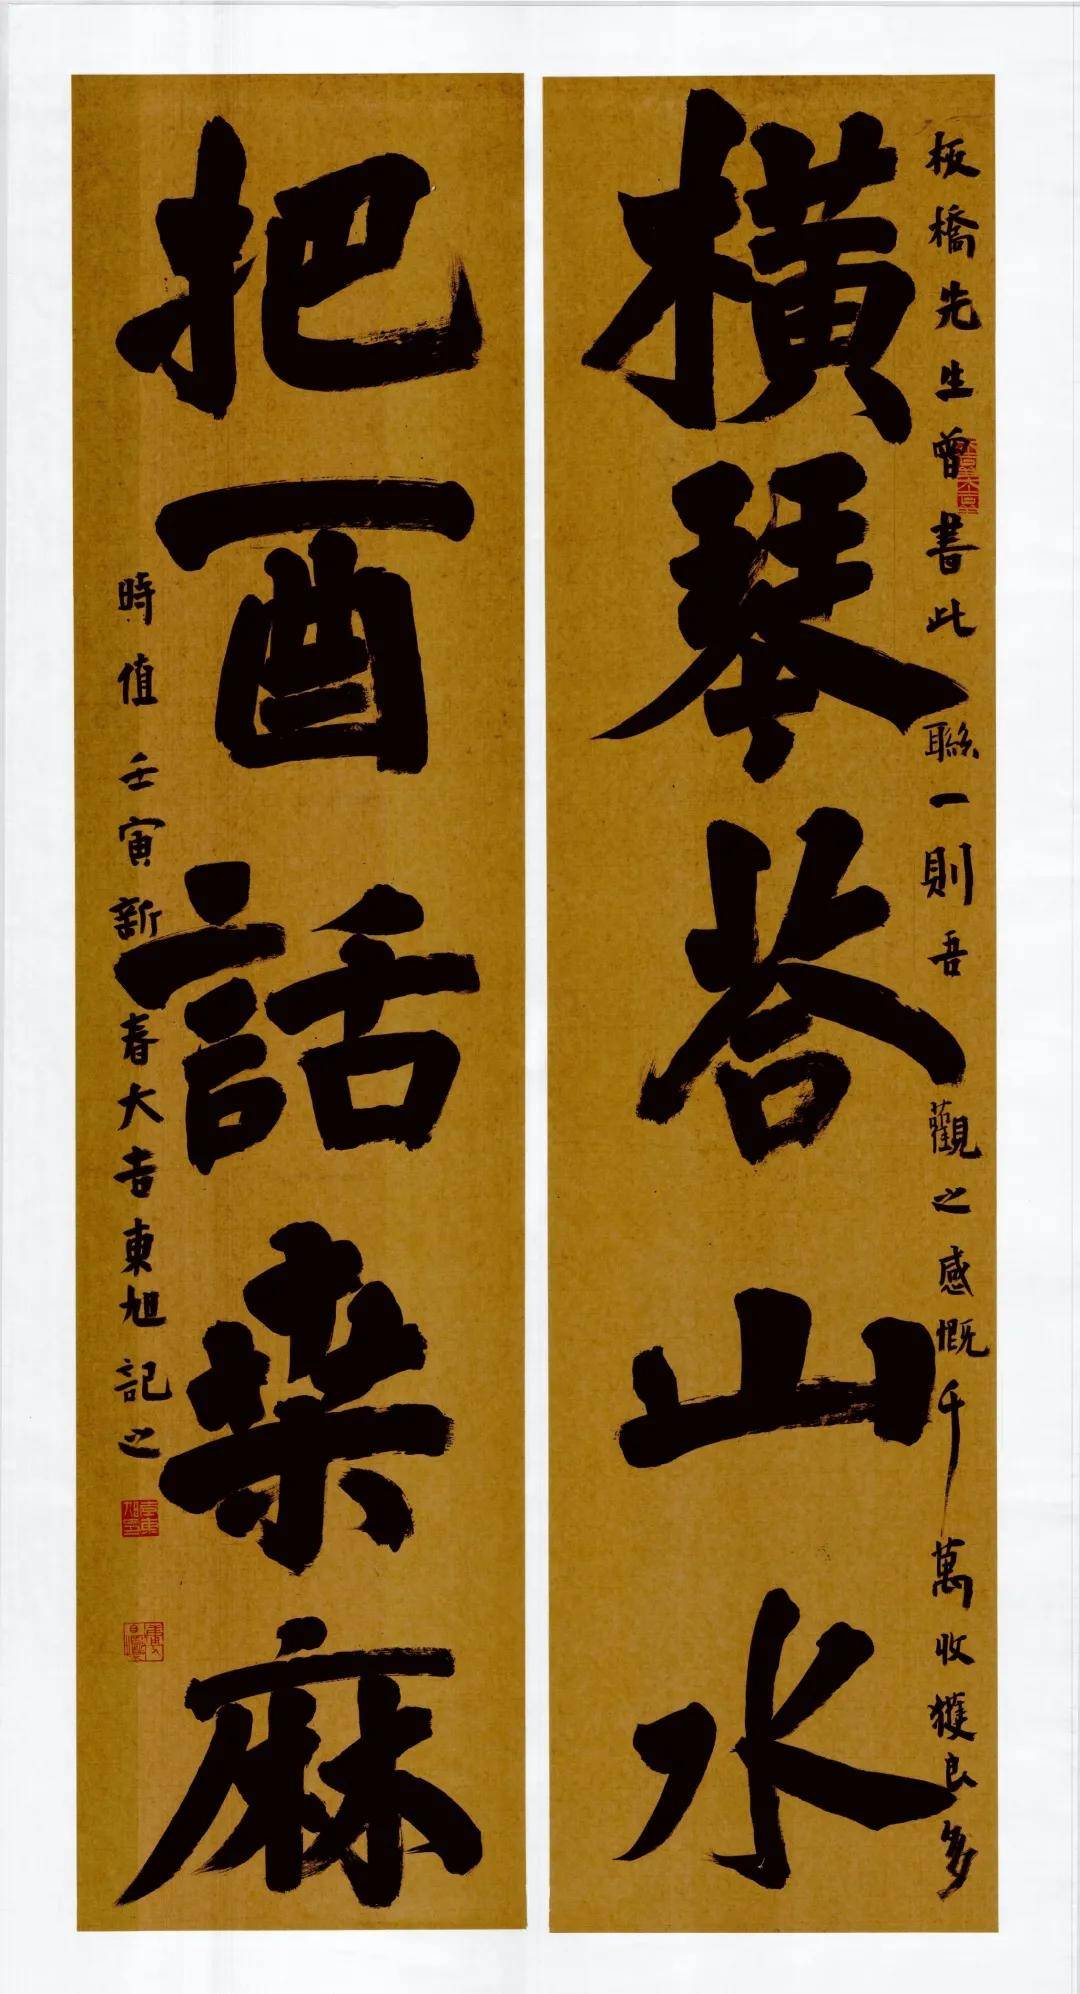 板橋先生曾書此聯一則吾觀之感慨千萬收獲良多
橫琴荅山水
把酉話桒麻
時值壬寅新春大吉東旭記之